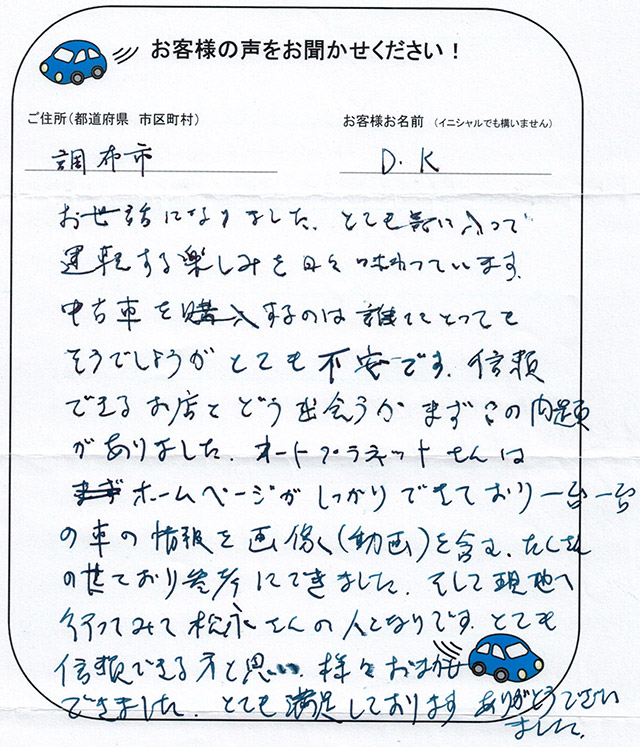 お客様の声をお聞かせください！
ご住所（都道府県 市区町村）
お客様お名前 （イニシャルでも構いません）
調布市
D.K
お世話になりました。とても気に入って
運転する楽しみを日々味わっています。
中古車を購入するのは誰にとっても
そうでしょうがとても不安です。信頼
できるお店とどう出会うかまずこの問題
がありました。オートプラネットさんは
ホームページがしっかりできており一台一台
の車の情報を画像（動画）を含む、たくさん
のせており参考にできました。そして現地へ
行ってみて松永さんの人となりです。とても
信頼できる方と思い、様々おまかせ
できました。とても満足しております ありがとうござい
ました。